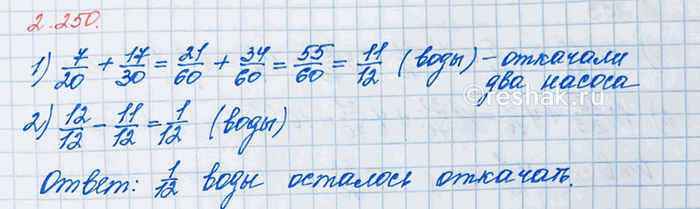 2.250.
1) 7/20 + 17/30 = 21/60 + 34/60 = 55/60 = 11/12 (воды) – откачали
два насоса
reshak.ru
2) 12/12 – 11/12 = 1/12 (воды)
Ответ: 1/12 воды осталось откачать.